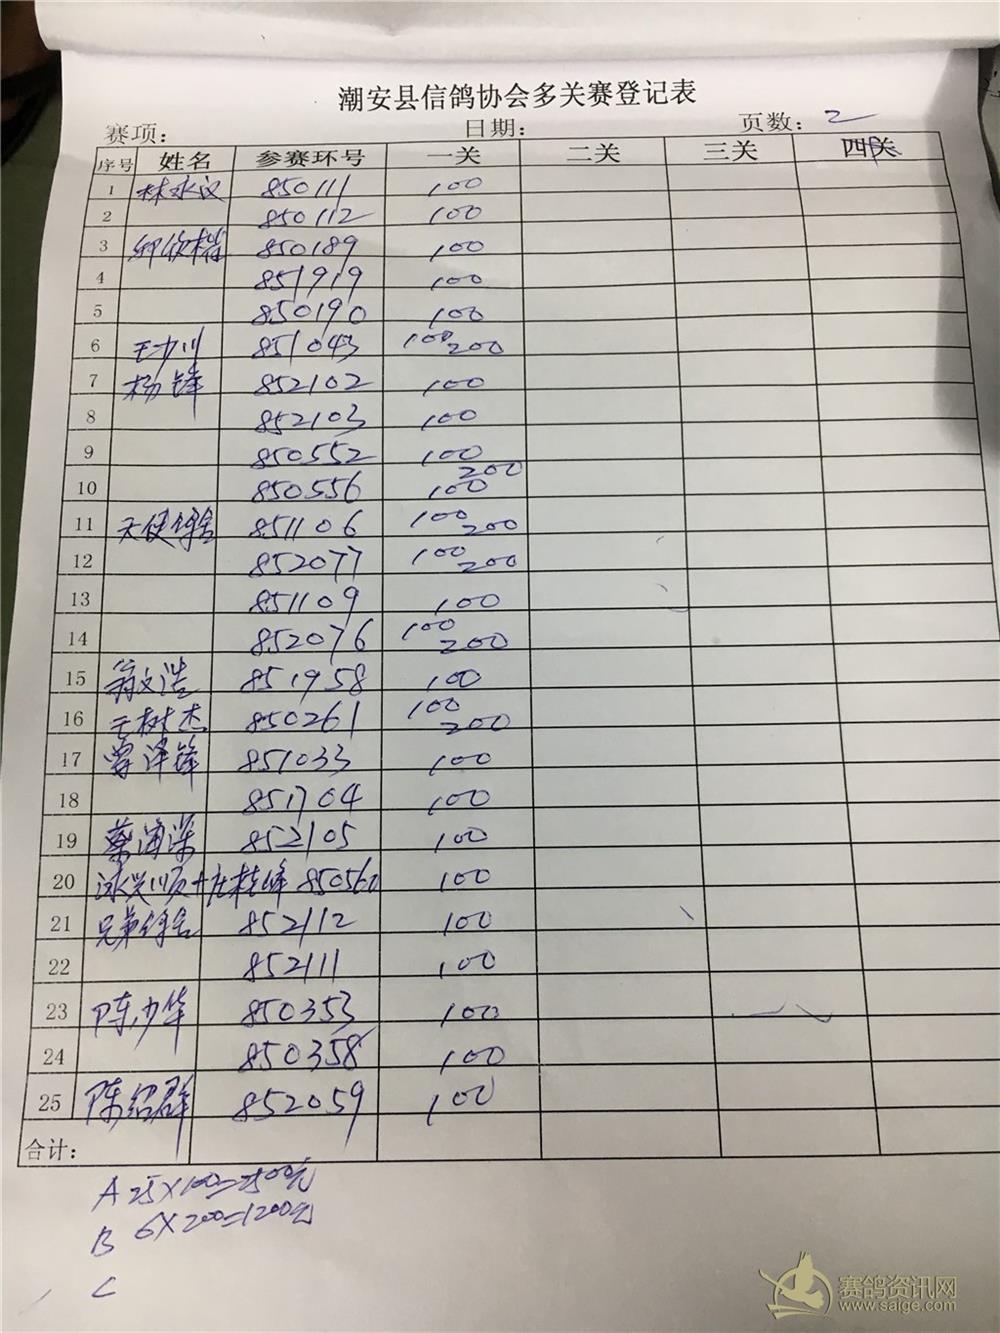 潮安县信鸽协会多关赛登记表
赛项： 日期： 页数：2
序号 姓名 参赛环号 一关 二关 三关 四关
1 林永汉 850111 100
2 850112 100
3 850189 100
4 851919 100
5 850190 100
6 王少川 851043 100 200
7 杨锋 852102 100
8 852103 100
9 850552 100
10 850556 200 100
11 天使鸽舍 851106 100 200
12 852077 100 200
13 851109 100
14 852076 100 200
15 翁文浩 851958 100
16 王树杰 850261 100 200
17 曾泽锋 851033 100
18 851704 100
19 蔡海深 852105 100
20 泳兴顺+庄桂峰 850560 100
21 兄弟鸽舍 852112 100
22 852111 100
23 陈少华 850353 100
24 850358 100
25 陈绍群 852059 100
合计：
A 25×100=2500元
B 6×200=1200元
C
赛鸽资讯网
www.saige.com